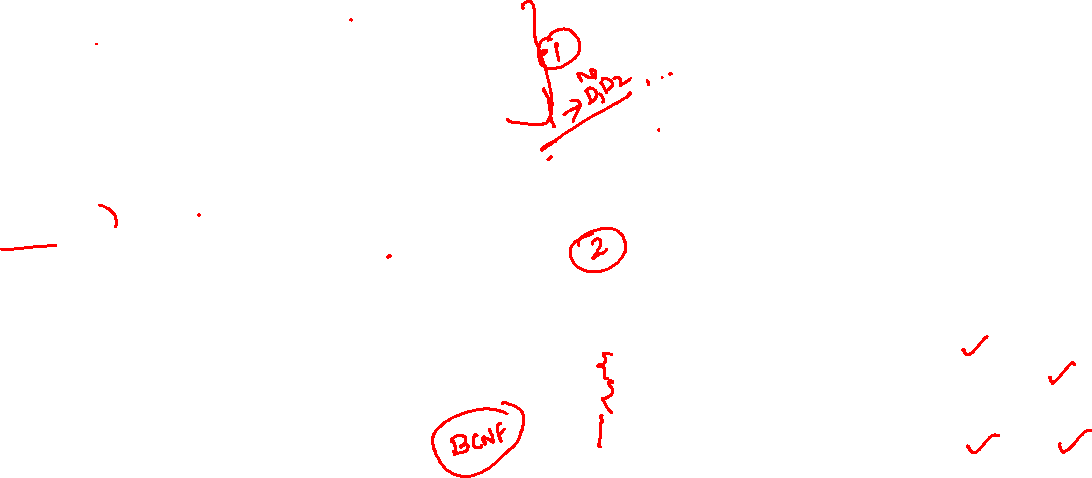 1
No
→ D1D2 ...
2
BCNF